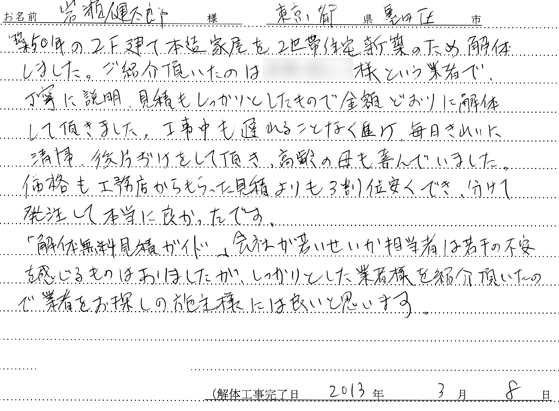 お名前 岩﨑健太郎 様 東京都 県 墨田区 市
築50年の2F建て木造家屋を2世帯住宅新築のため解体
しました。ご紹介頂いたのは 様という業者で、
丁寧に説明、見積もしっかりとしたもので金額どおりに解体
して頂きました。工事中も遅れることなく進み、毎日きれいに
清掃、後片づけをして頂き、高齢の母も喜んでいました。
価格も工務店からもらった見積よりも3割位安くでき、分けて
発注して本当に良かったです。
「解体無料見積ガイド」、会社が若いせいか担当者は若干の不安
を感じるものはありましたが、しっかりとした業者様を紹介頂いたの
で業者をお探しの施主様には良いと思います。
(解体工事完了日 2013 年 3 月 8 日